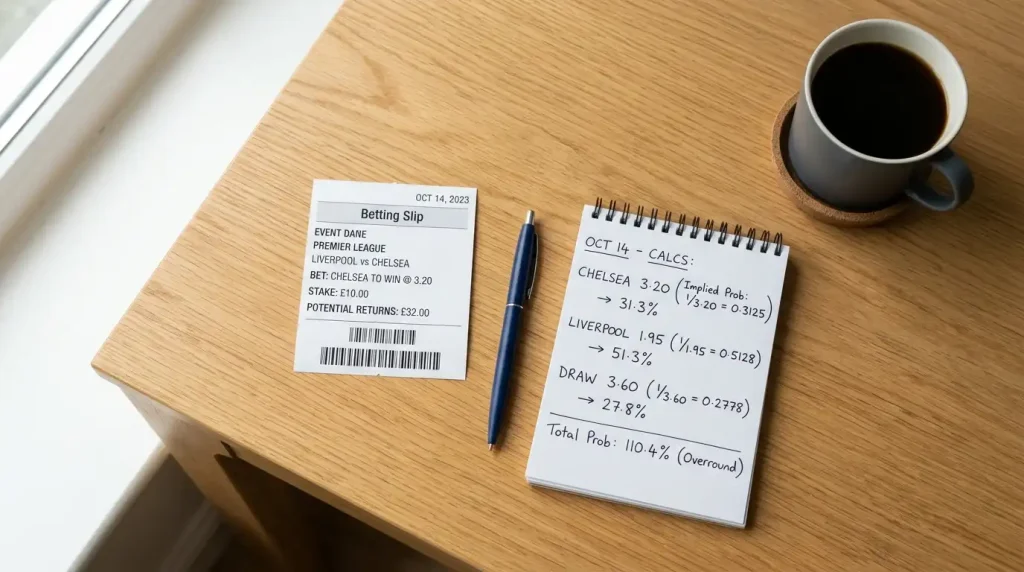 OCT 14, 2023
Betting Slip
EVENT DANE
PREMIER LEAGUE
LIVERPOOL vs CHELSEA
BET: CHELSEA TO WIN @ 3.20
STAKE: £10.00
POTENTIAL RETURNS: £32.00
OCT 14 - CALCS:
CHELSEA 3.20 (Implied Prob:
1/3.20 = 0.3125)
→ 31.3%
LIVERPOOL 1.95 (1/1.95 = 0.5128)
→ 51.3%
DRAW 3.60 (1/3.60 = 0.2778)
→ 27.8%
Total Prob: 110.4% (Overround)